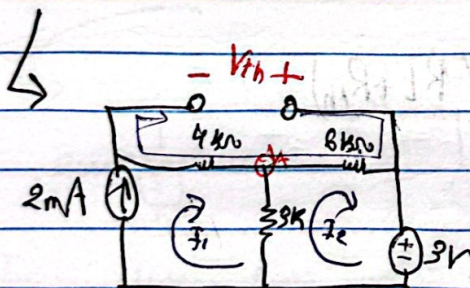 - Vth +
4KΩ A 8KΩ
2mA I1 3K I2 3V